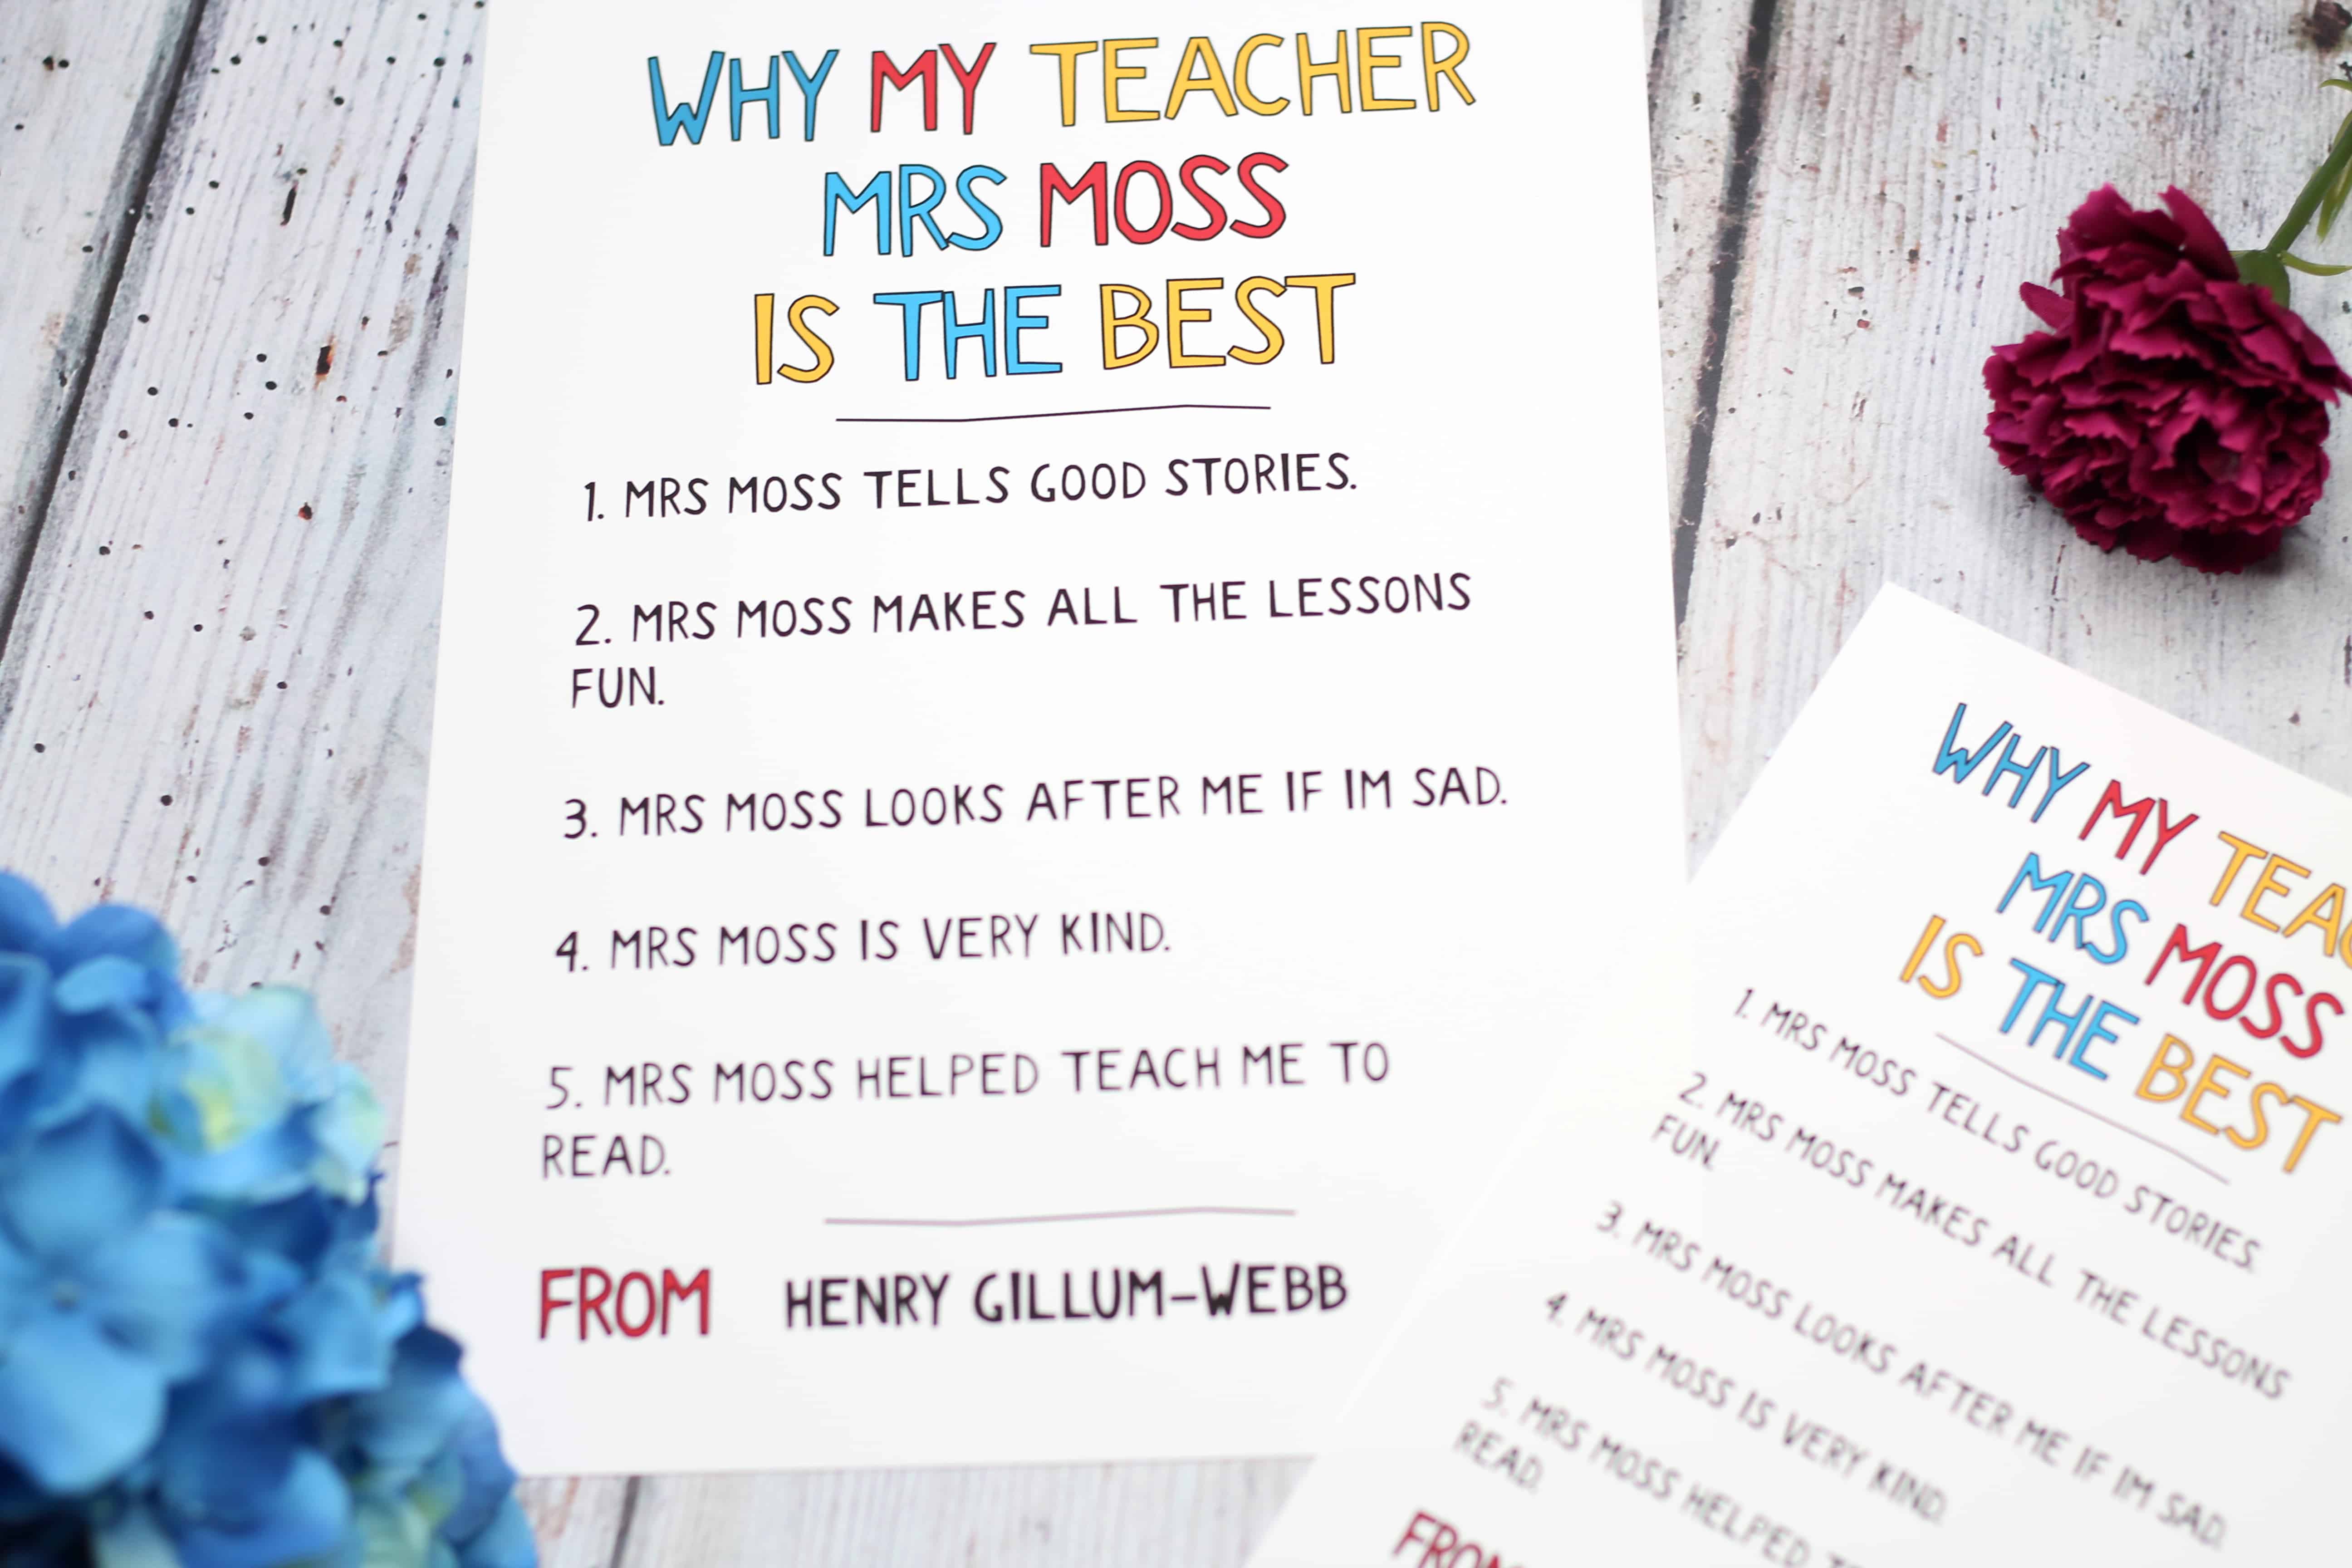 WHY MY TEACHER
MRS MOSS
IS THE BEST
1. MRS MOSS TELLS GOOD STORIES.
2. MRS MOSS MAKES ALL THE LESSONS
FUN.
3. MRS MOSS LOOKS AFTER ME IF IM SAD.
4. MRS MOSS IS VERY KIND.
5. MRS MOSS HELPED TEACH ME TO
READ.
FROM HENRY GILLUM-WEBB
WHY MY TEAC
MRS MOSS
IS THE BEST
1. MRS MOSS TELLS GOOD STORIES.
2. MRS MOSS MAKES ALL THE LESSONS
FUN.
3. MRS MOSS LOOKS AFTER ME IF IM SAD.
4. MRS MOSS IS VERY KIND.
5. MRS MOSS HELPED
READ.
FROM